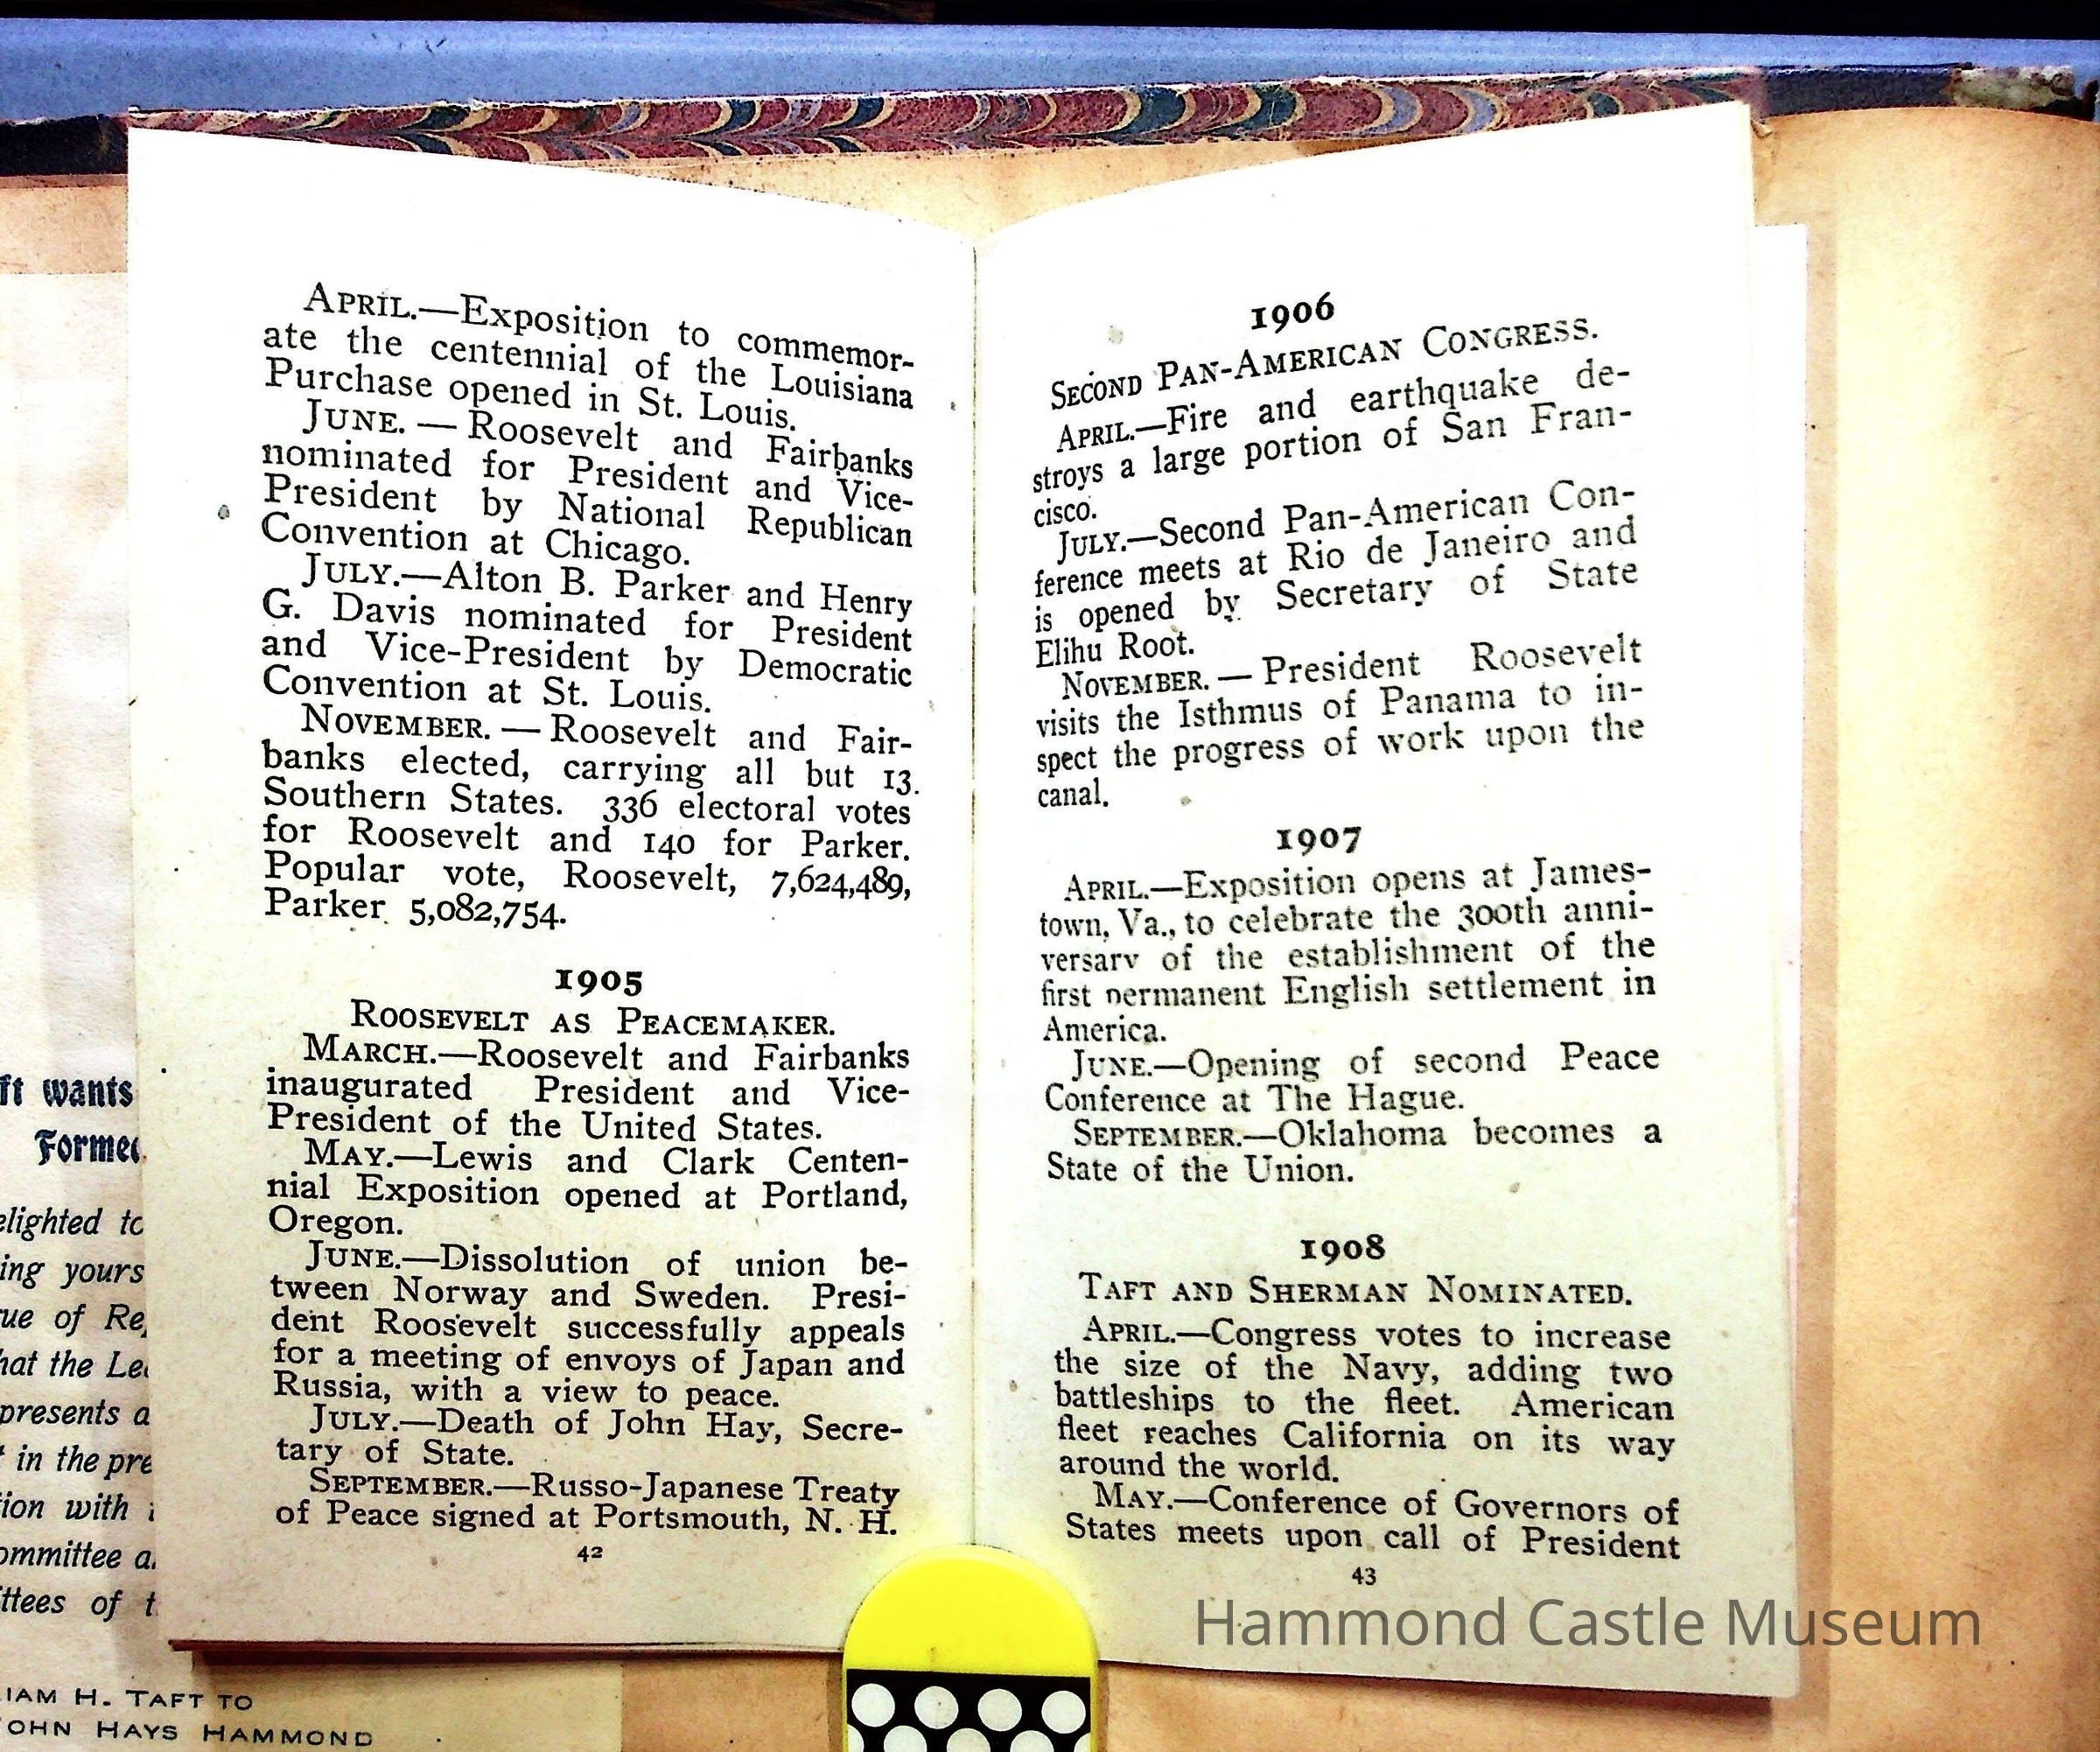 APRIL.—Exposition to commemor-
ate the centennial of the Louisiana
Purchase opened in St. Louis.
JUNE. — Roosevelt and Fairbanks
nominated for President and Vice-
President by National Republican
Convention at Chicago.
JULY.—Alton B. Parker and Henry
G. Davis nominated for President
and Vice-President by Democratic
Convention at St. Louis.
NOVEMBER. — Roosevelt and Fair-
banks elected, carrying all but 13
Southern States. 336 electoral votes
for Roosevelt and 140 for Parker.
Popular vote, Roosevelt, 7,624,489,
Parker 5,082,754.
1905
ROOSEVELT AS PEACEMAKER.
MARCH.—Roosevelt and Fairbanks
inaugurated President and Vice-
President of the United States.
MAY.—Lewis and Clark Centen-
nial Exposition opened at Portland,
Oregon.
JUNE.—Dissolution of union be-
tween Norway and Sweden. Presi-
dent Roosevelt successfully appeals
for a meeting of envoys of Japan and
Russia, with a view to peace.
JULY.—Death of John Hay, Secre-
tary of State.
SEPTEMBER.—Russo-Japanese Treaty
of Peace signed at Portsmouth, N. H.
42
1906
SECOND PAN-AMERICAN CONGRESS.
APRIL.—Fire and earthquake de-
stroys a large portion of San Fran-
cisco.
JULY.—Second Pan-American Con-
ference meets at Rio de Janeiro and
is opened by Secretary of State
Elihu Root.
NOVEMBER. — President Roosevelt
visits the Isthmus of Panama to in-
spect the progress of work upon the
canal.
1907
APRIL.—Exposition opens at James-
town, Va., to celebrate the 300th anni-
versary of the establishment of the
first permanent English settlement in
America.
JUNE.—Opening of second Peace
Conference at The Hague.
SEPTEMBER.—Oklahoma becomes a
State of the Union.
1908
TAFT AND SHERMAN NOMINATED.
APRIL.—Congress votes to increase
the size of the Navy, adding two
battleships to the fleet. American
fleet reaches California on its way
around the world.
MAY.—Conference of Governors of
States meets upon call of President
43
Hammond Castle Museum
ft wants
Formed
elighted to
ing yours
ue of Re
hat the Le
presents a
in the pre
ion with
ommittee a
ttees of t
IAM H. TAFT TO
OHN HAYS HAMMOND